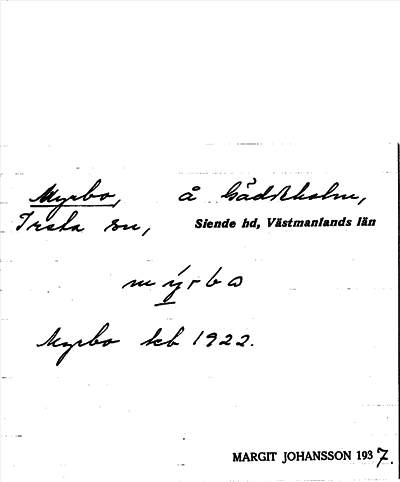 Myrbo, å Gäddeholm,
Irsta sn, Siende hd, Västmanlands län
mýrbω
Myrbo kb 1922.
MARGIT JOHANSSON 1937.